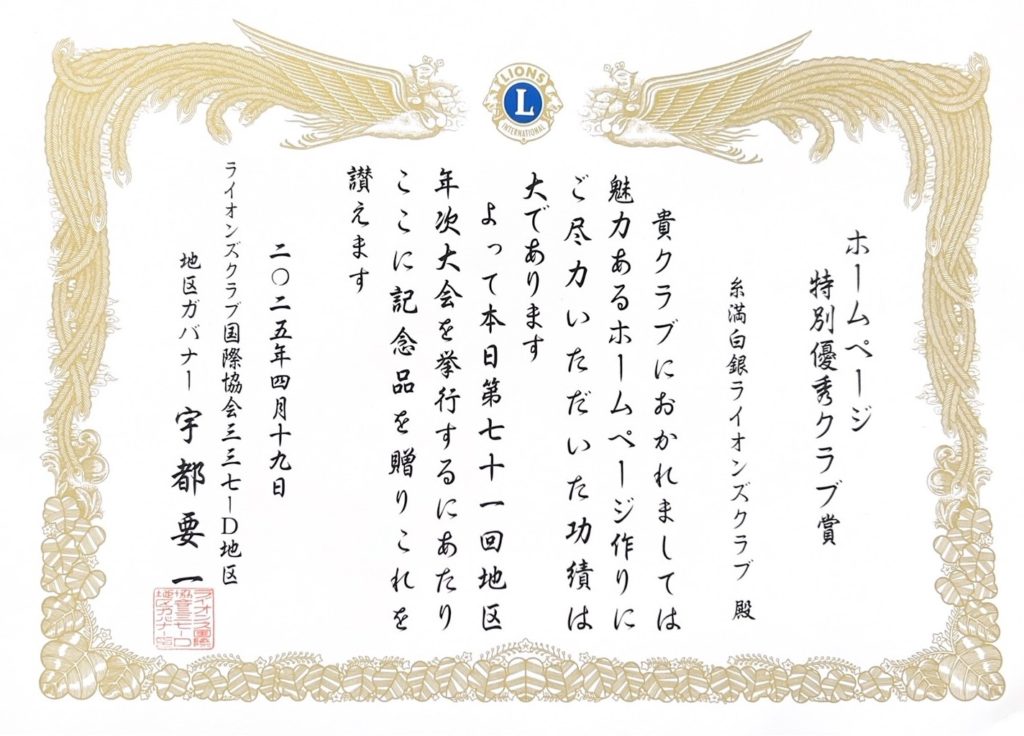 LIONS
L
INTERNATIONAL
ホームページ
特別優秀クラブ賞
糸満白銀ライオンズクラブ 殿
貴クラブにおかれましては
魅力あるホームページ作りに
ご尽力いただいた功績は
大であります
よって本日第七十一回地区
年次大会を挙行するにあたり
ここに記念品を贈りこれを
讃えます
二〇二五年四月十九日
ライオンズクラブ国際協会三三七ーD地区
地区ガバナー 宇都要一